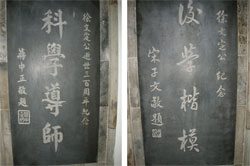 徐文定公逝世三百周年紀念
科學導師
蔣中正敬題
徐文定公紀念
後學楷模
宋子文敬題